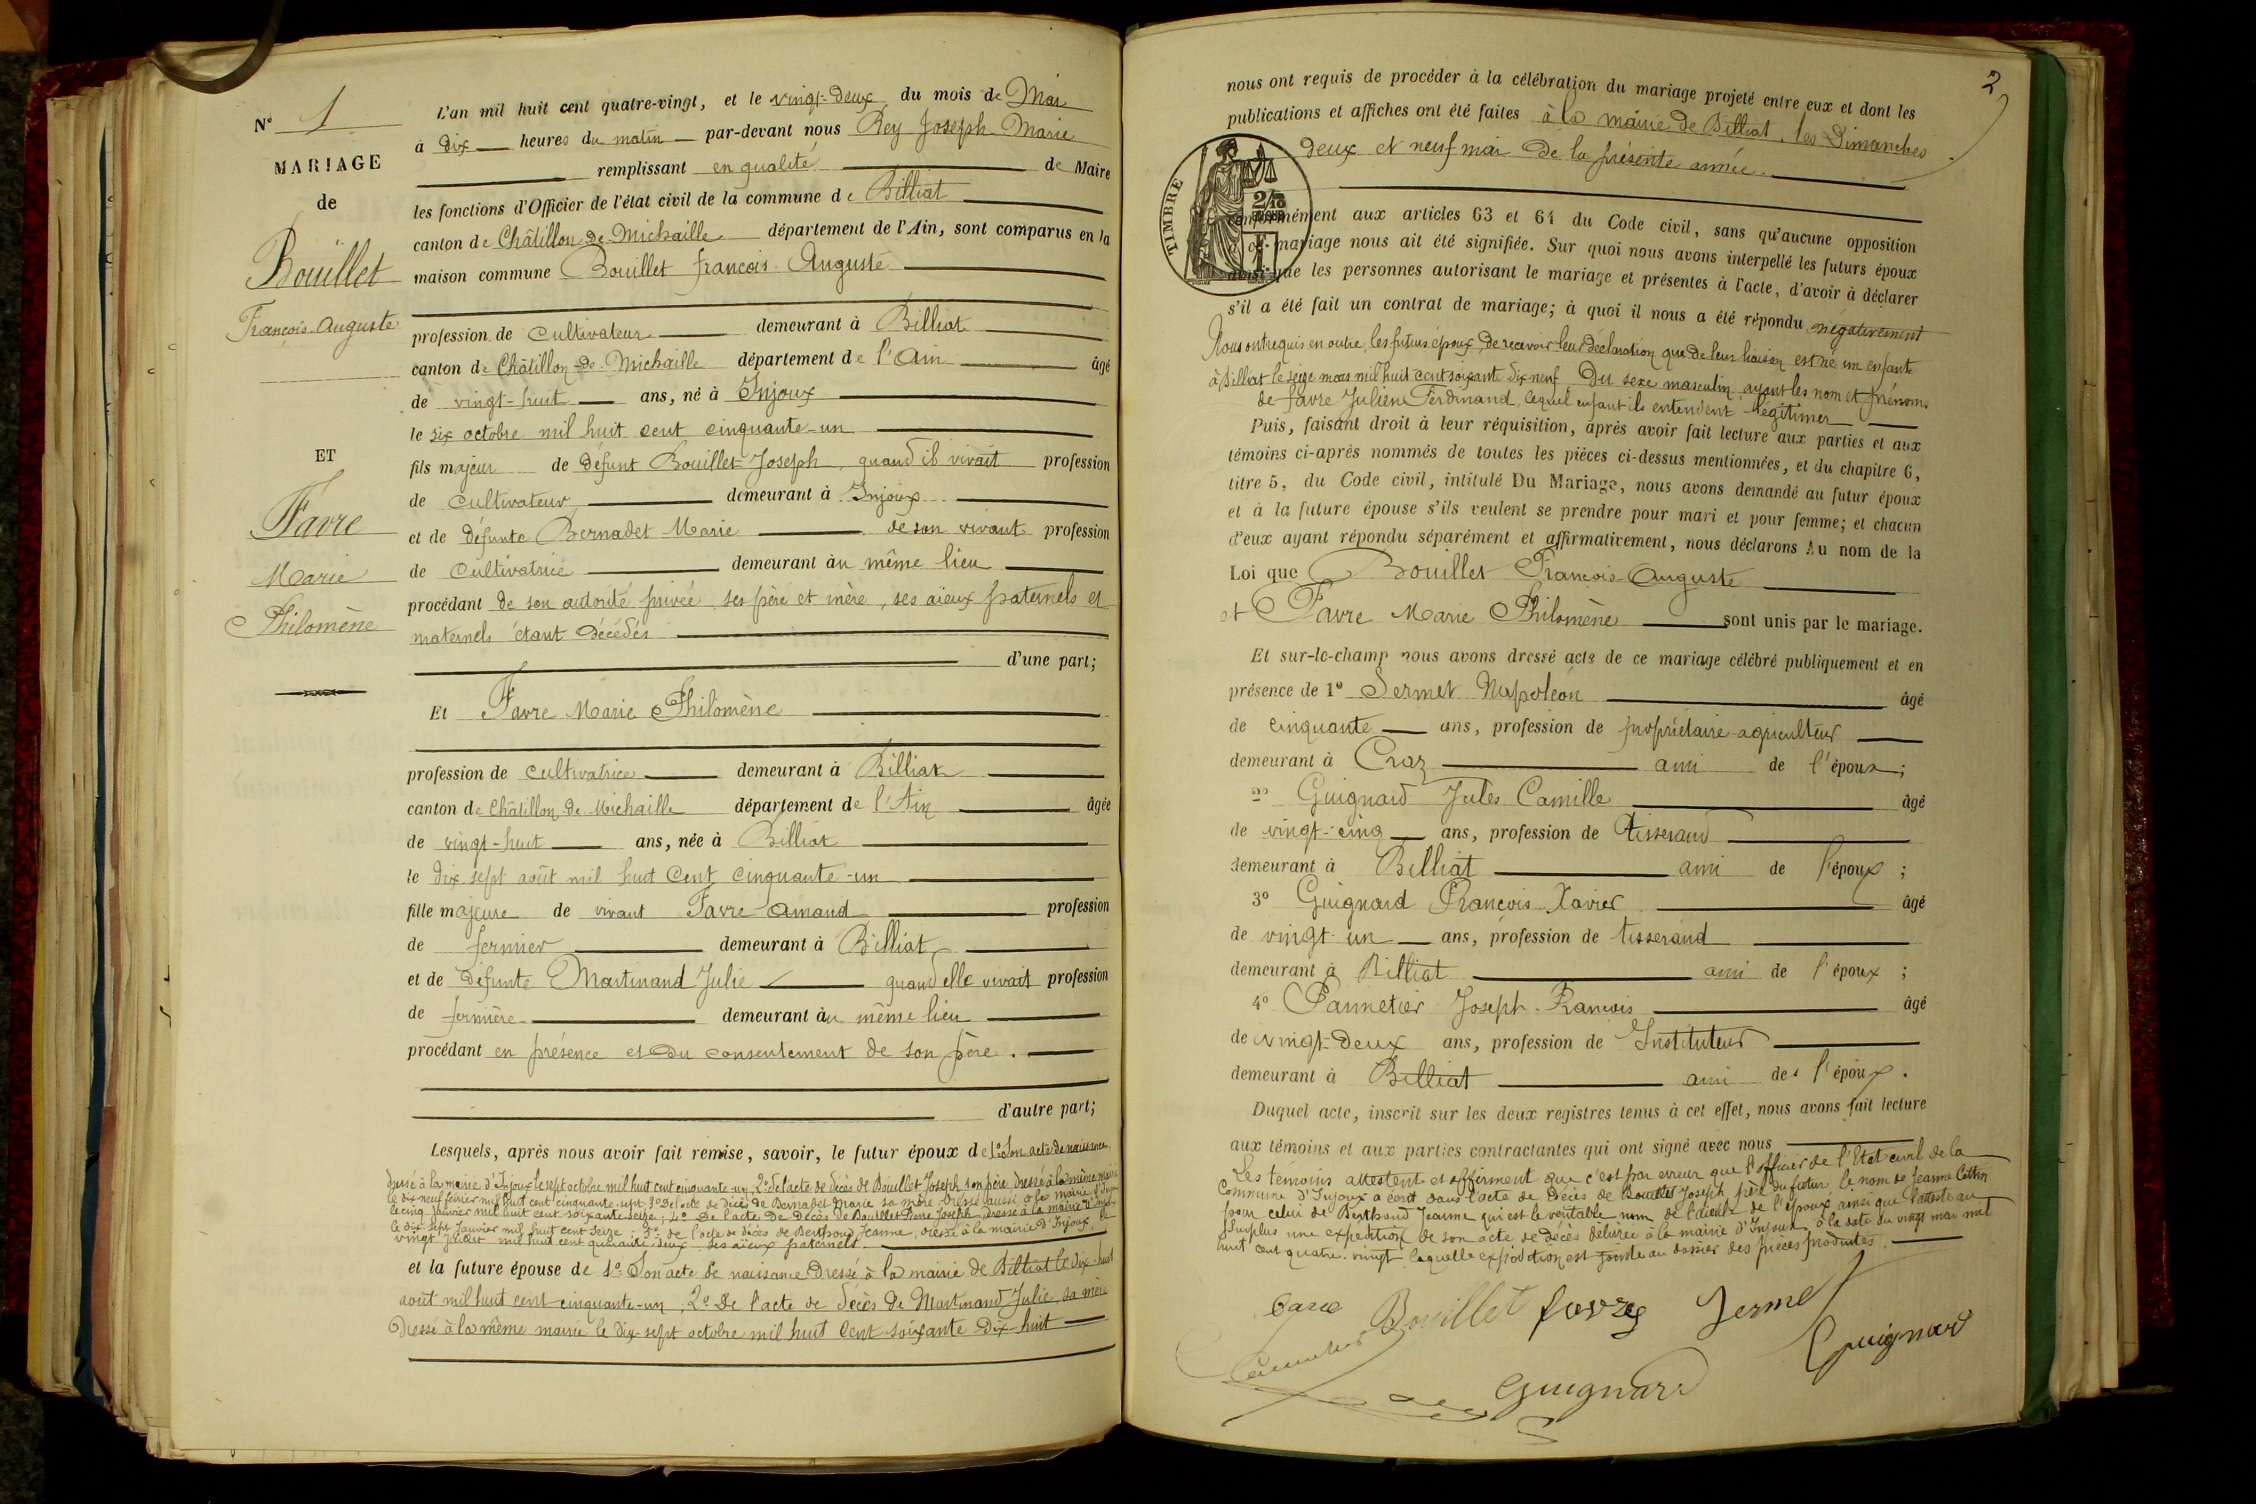 N° 1
MARIAGE
de
Bouillet
François-Auguste
ET
Favre
Marie
Philomène
L'an mil huit cent quatre-vingt, et le vingt-deux du mois de Mai
à dix heures du matin par-devant nous Rey Joseph Marie
remplissant en qualité de Maire
les fonctions d'Officier de l'état civil de la commune de Billiat
canton de Châtillon de Michaille département de l'Ain, sont comparus en la
maison commune Bouillet françois Auguste
profession de cultivateur demeurant à Billiat
canton de Châtillon-de-Michaille département de l'Ain âgé
de vingt-huit ans, né à Injoux
le six octobre mil huit cent cinquante-un
fils majeur de défunt Bouillet Joseph, quand il vivait profession
de cultivateur demeurant à Injoux
et de défunte Bernadet Marie de son vivant profession
de cultivatrice demeurant au même lieu
procédant de son autorité privée, ses père et mère, ses aïeux paternels et
maternels étant décédés
d'une part;
Et Favre Marie Philomène
profession de cultivatrice demeurant à Billiat
canton de Châtillon de Michaille département de l'Ain âgée
de vingt-huit ans, née à Billiat
le dix sept août mil huit cent cinquante-un
fille majeure de vivant Favre Amand profession
de fermier demeurant à Billiat
et de défunte Martinand Julie quand elle vivait profession
de fermière demeurant au même lieu
procédant en présence et du consentement de son père.
d'autre part;
Lesquels, après nous avoir fait remise, savoir, le futur époux de 1° Son acte de naissance,
dressé à la mairie d'Injoux le sept octobre mil huit cent cinquante-un, 2° de l'acte de décès de Bouillet Joseph son père, dressé à la même mairie
le dix neuf février mil huit cent cinquante-sept, 3° De l'acte de décès de Bernadet Marie sa mère, dressé aussi à la mairie d'Injoux
le cinq janvier mil huit cent soixante-seize, 4° De l'acte de décès de Bouillet Pierre Joseph, dressé à la mairie d'Injoux
le dix sept Janvier mil huit cent seize, 5° de l'acte de décès de Berthoud Jeanne, dressé à la mairie d'Injoux le
vingt mil huit cent quarante deux, ses aïeux paternels.
et la future épouse de 1° Son acte de naissance dressé à la mairie de Billiat le dix-huit
août mil huit cent cinquante-un, 2° De l'acte de décès de Martinand Julie, sa mère
Dressé à la même mairie le dix-sept octobre mil huit cent soixante-dix-huit
2
nous ont requis de procéder à la célébration du mariage projeté entre eux et dont les
publications et affiches ont été faites à la mairie de Billiat, les Dimanches
deux et neuf mai de la présente année.
TIMBRE
conformément aux articles 63 et 64 du Code civil, sans qu'aucune opposition
à ce mariage nous ait été signifiée. Sur quoi nous avons interpellé les futurs époux
ainsi que les personnes autorisant le mariage et présentes à l'acte, d'avoir à déclarer
s'il a été fait un contrat de mariage; à quoi il nous a été répondu négativement
Nous ont requis en outre, les futurs époux, de recevoir leur déclaration que de leur liaison est né un enfant
à Billiat le seize mars mil huit cent soixante dix neuf, Du sexe masculin ayant les nom et prénoms
de Favre Julien Ferdinand, lequel enfant ils entendent légitimer
Puis, faisant droit à leur réquisition, après avoir fait lecture aux parties et aux
témoins ci-après nommés de toutes les pièces ci-dessus mentionnées, et du chapitre 6,
titre 5, du Code civil, intitulé Du Mariage, nous avons demandé au futur époux
et à la future épouse s'ils veulent se prendre pour mari et pour femme; et chacun
d'eux ayant répondu séparément et affirmativement, nous déclarons Au nom de la
Loi que Bouillet François-Auguste
et Favre Marie Philomène sont unis par le mariage.
Et sur-le-champ nous avons dressé acte de ce mariage célébré publiquement et en
présence de 1° Sermet Napoléon âgé
de cinquante ans, profession de propriétaire-agriculteur
demeurant à Craz ami de l'époux;
2° Guignard Jules Camille âgé
de vingt-cinq ans, profession de tisserand
demeurant à Billiat ami de l'époux;
3° Guignard François Xavier âgé
de vingt un ans, profession de tisserand
demeurant à Billiat ami de l'époux;
4° Pannetier Joseph-François âgé
de vingt-deux ans, profession de Instituteur
demeurant à Billiat ami de l'époux.
Duquel acte, inscrit sur les deux registres tenus à cet effet, nous avons fait lecture
aux témoins et aux parties contractantes qui ont signé avec nous
Les témoins attestent et affirment que c'est par erreur que l'officier de l'Etat civil de la
Commune d'Injoux a écrit dans l'acte de décès de Bouillet Joseph père du futur, le nom de Jeanne
pour celui de Berthoud Jeanne qui est le véritable nom de l'aïeule de l'époux ainsi que l'atteste au
surplus une expédition de son acte de décès délivrée à la mairie d'Injoux à la date du vingt mai mil
huit cent quatre-vingt laquelle expédition est jointe au dossier des pièces produites.
Bouillet favre Sermet
Guignard
Guignard